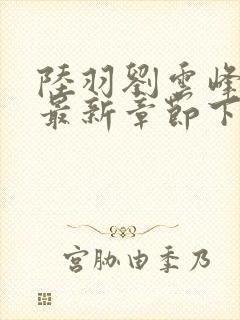 陸羽劉雲峰
最新章節下
宮胁由季乃